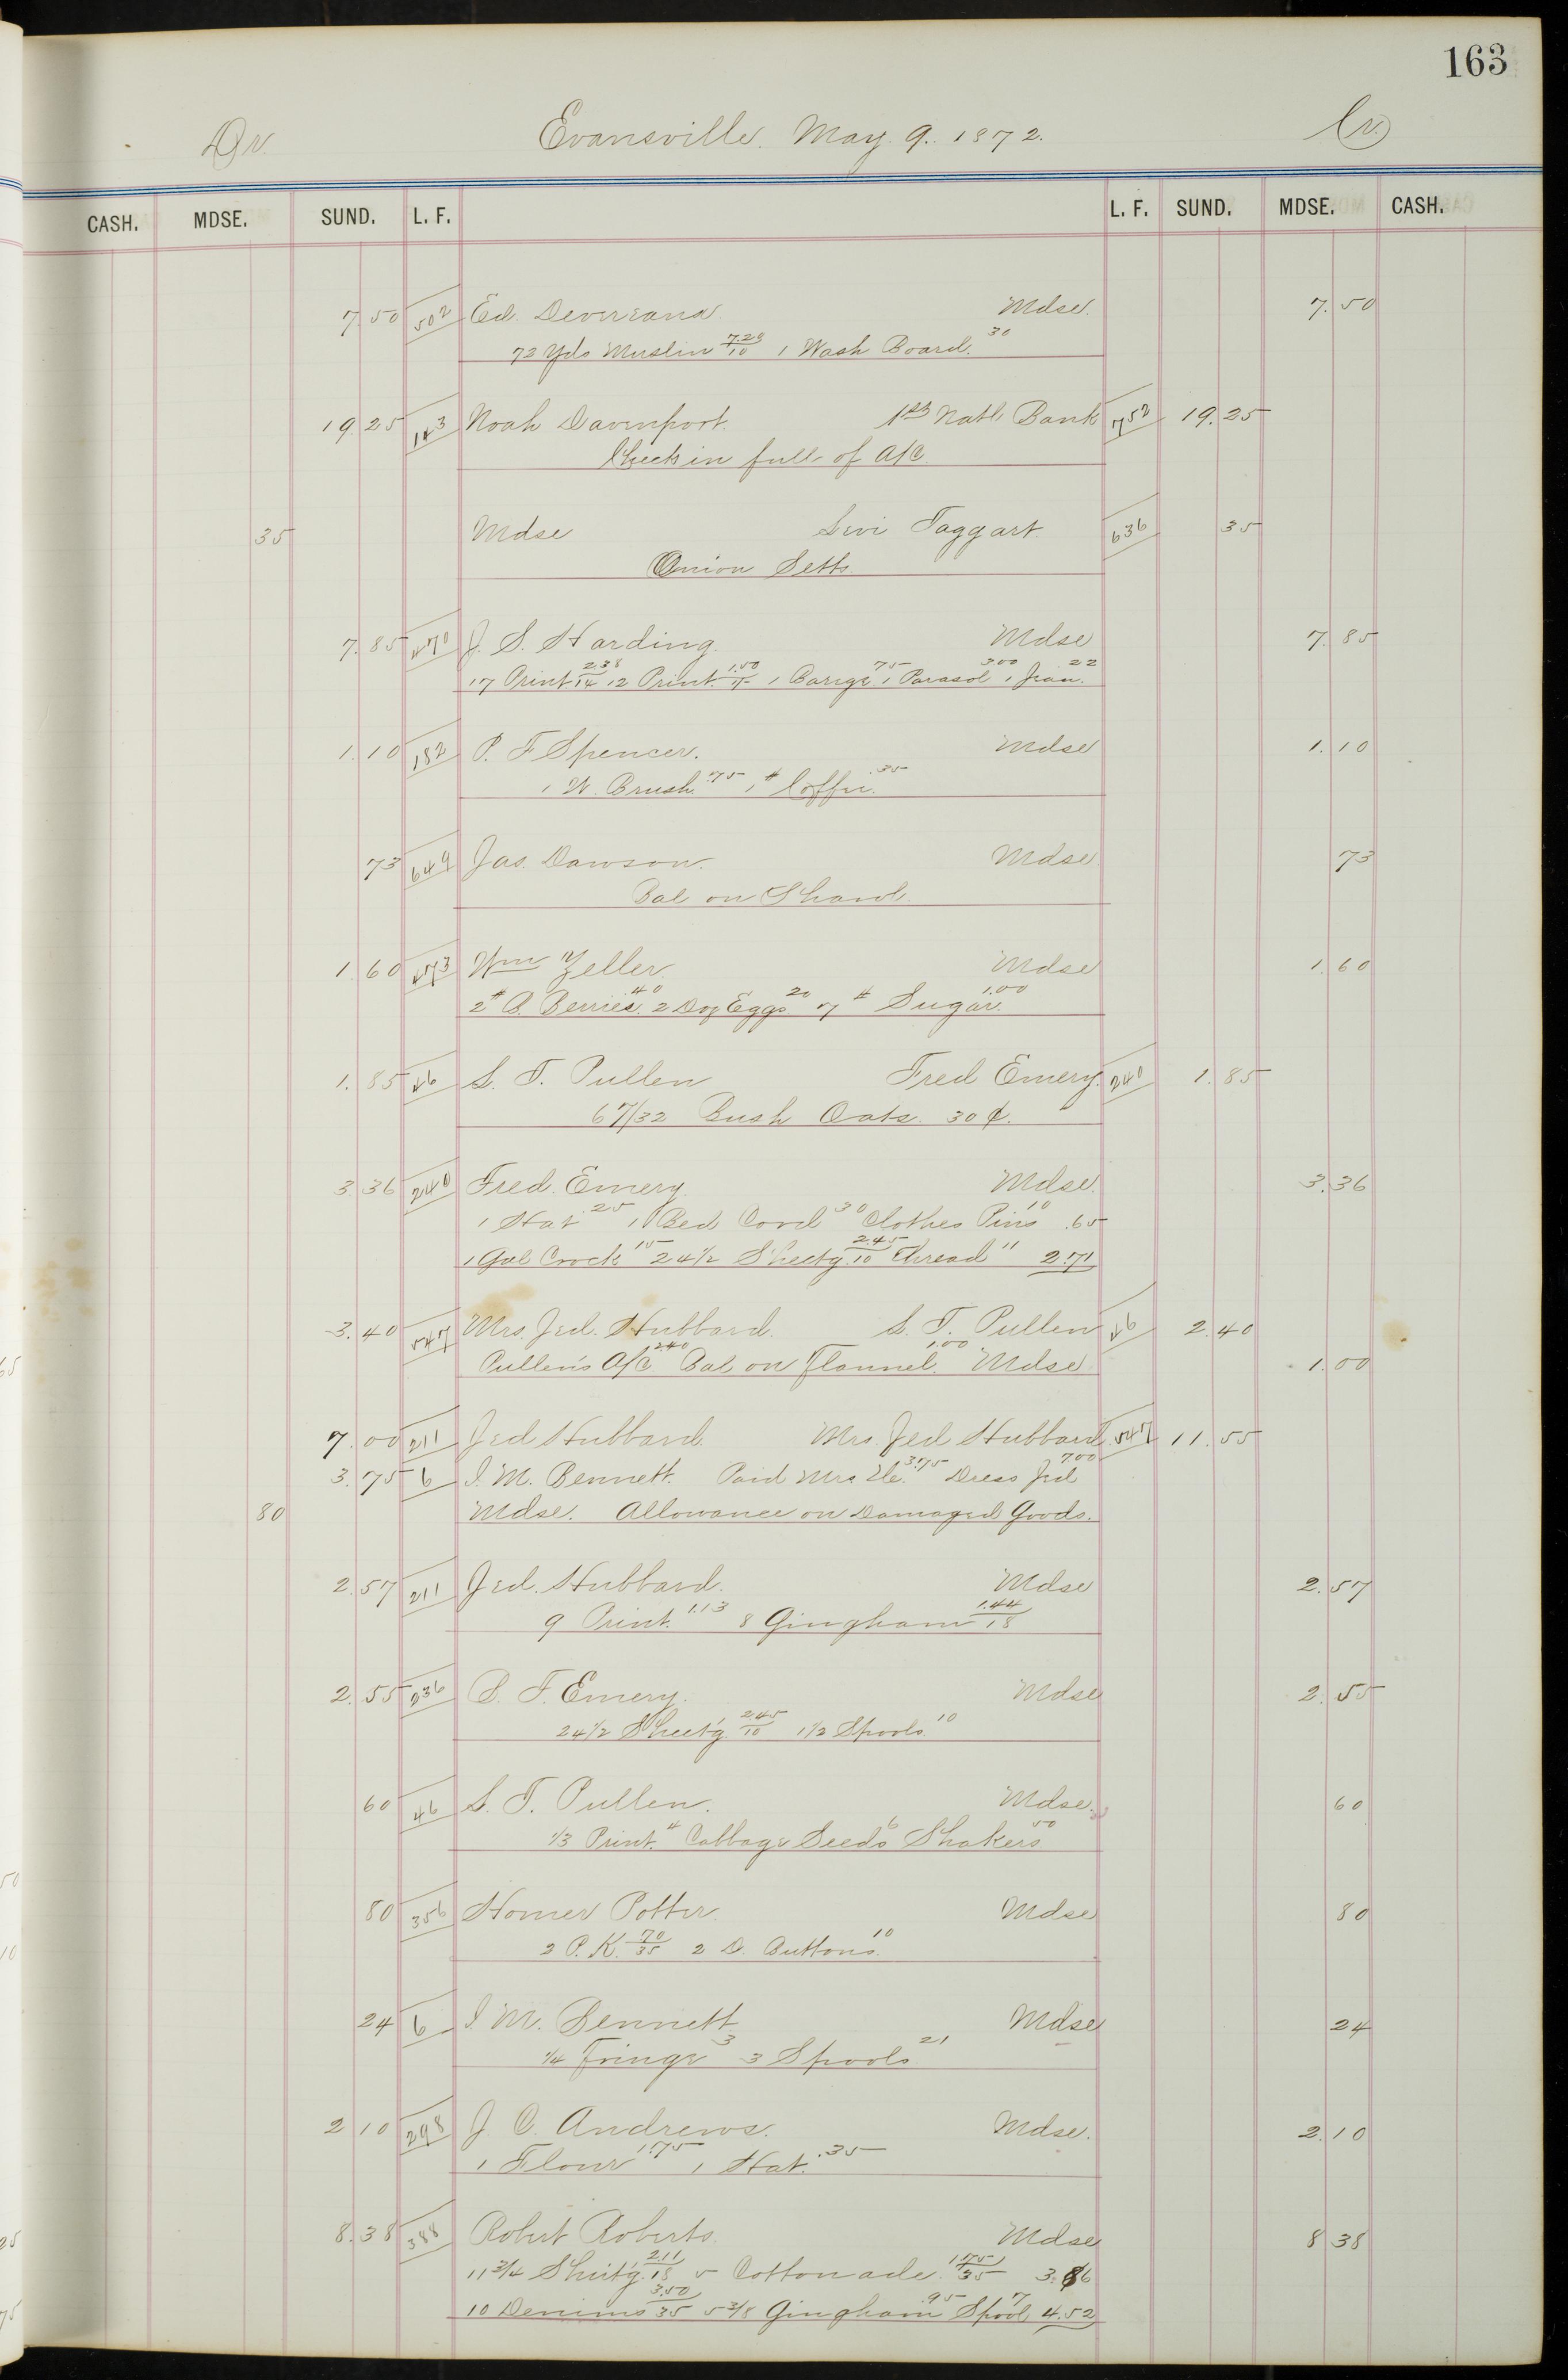 163
Dr. Evansville. May 9. 1872. Cr.
CASH. MDSE. SUND. L. F. L. F. SUND. MDSE. CASH.
7.50 502 Ed. Devereaux. Mdse. 7.50
72 Yds Muslin 7.20/10 1 Wash Board. 30
19.25 143 Noah Davenport. 1st Natl. Bank 752 19.25
Check in full of A/C.
35 Mdse Levi Taggart. 636 35
Onion Setts
7.85 470 J. S. Harding. Mdse 7.85
17 Print 2.38/14 12 Print. 1.50 1 Barige 75 1 Parasol 3.00 1 Jean. 22
1.10 182 P. F Spencer. Mdse 1.10
1 W. Brush. .75 1 # Coffee. .35
73 649 Jas. Dawson. Mdse. 73
Bal on Shawl.
1.60 473 Wm Zeller. Mdse 1.60
2# B. Berries. 40 2 Doz Eggs 20 7 # Sugar. 1.00
1.85 46 S. T. Pullen Fred Emery. 240 1.85
6 7/32 Bush Oats. 30 ¢.
3.36 240 Fred. Emery. Mdse. 3.36
1 Hat 25 1 Bed Cord 30 Clothes Pins 10 .65
1 Gal Crock 15 24 1/2 Sheetg. 2.45/10 Thread 11 2.71
3.40 547 Mrs. Jed. Hubbard. S. T. Pullen 46 2.40
Pullen's A/C 2.40 Bal on Flannel. 1.00 Mdse 1.00
7.00 211 Jed Hubbard. Mrs. Jed Hubbard. 547 11.55
3.75 6 I. M. Bennett. Paid Mrs 3.75 Dress Jed 7.00
80 Mdse. Allowance on Damaged Goods.
2.57 211 Jed. Hubbard. Mdse 2.57
9 Print. 1.13 8 Gingham 1.44/18
2.55 236 S. F. Emery. Mdse 2.55
24 1/2 Sheet'g. 2.45/10 1 1/2 Spools. 10
60 46 S. T. Pullen. Mdse. 60
1/3 Print. 4 Cabbage Seeds 6 Shakers 50
80 356 Homer Potter. Mdse 80
2 P. K. 70/35 2 D. Buttons. 10
24 6 I. M. Bennett Mdse 24
1/4 Fringe 3 3 Spools 21
2.10 298 J. C. Andrews. Mdse. 2.10
1 Flour 1.75 1 Hat. .35
8.38 388 Robert Roberts. Mdse 8.38
11 3/4 Sheet'g. 2.11/18 5 Cottonade. 1.75/35 3.86
10 Denims 3.50/35 5 3/8 Gingham .95 Spool 7 4.52